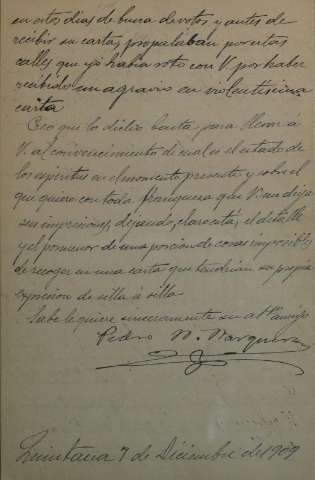 en estos dias de buena devotos y antes de
recibir su carta, propalaban por estas
calles que ya habia roto con V. por haber
recibido un agravio en violentisima
carta
Creo que lo dicho basta, para llevar á
V. al convencimiento de cual es el estado de
los espiritus en el momento presente y sobre el
que quiero con toda franqueza que V. me diga
sus impresiones, dejando, claro está, el detalle
y el pormenor de una porción de cosas imposibles
de recoger en una carta que tendrian su propia
expresion de silla á silla.
Sabe le quiere sinceramente su affmo amigo
Pedro N.
Quintana 7 de Diciembre de 1909